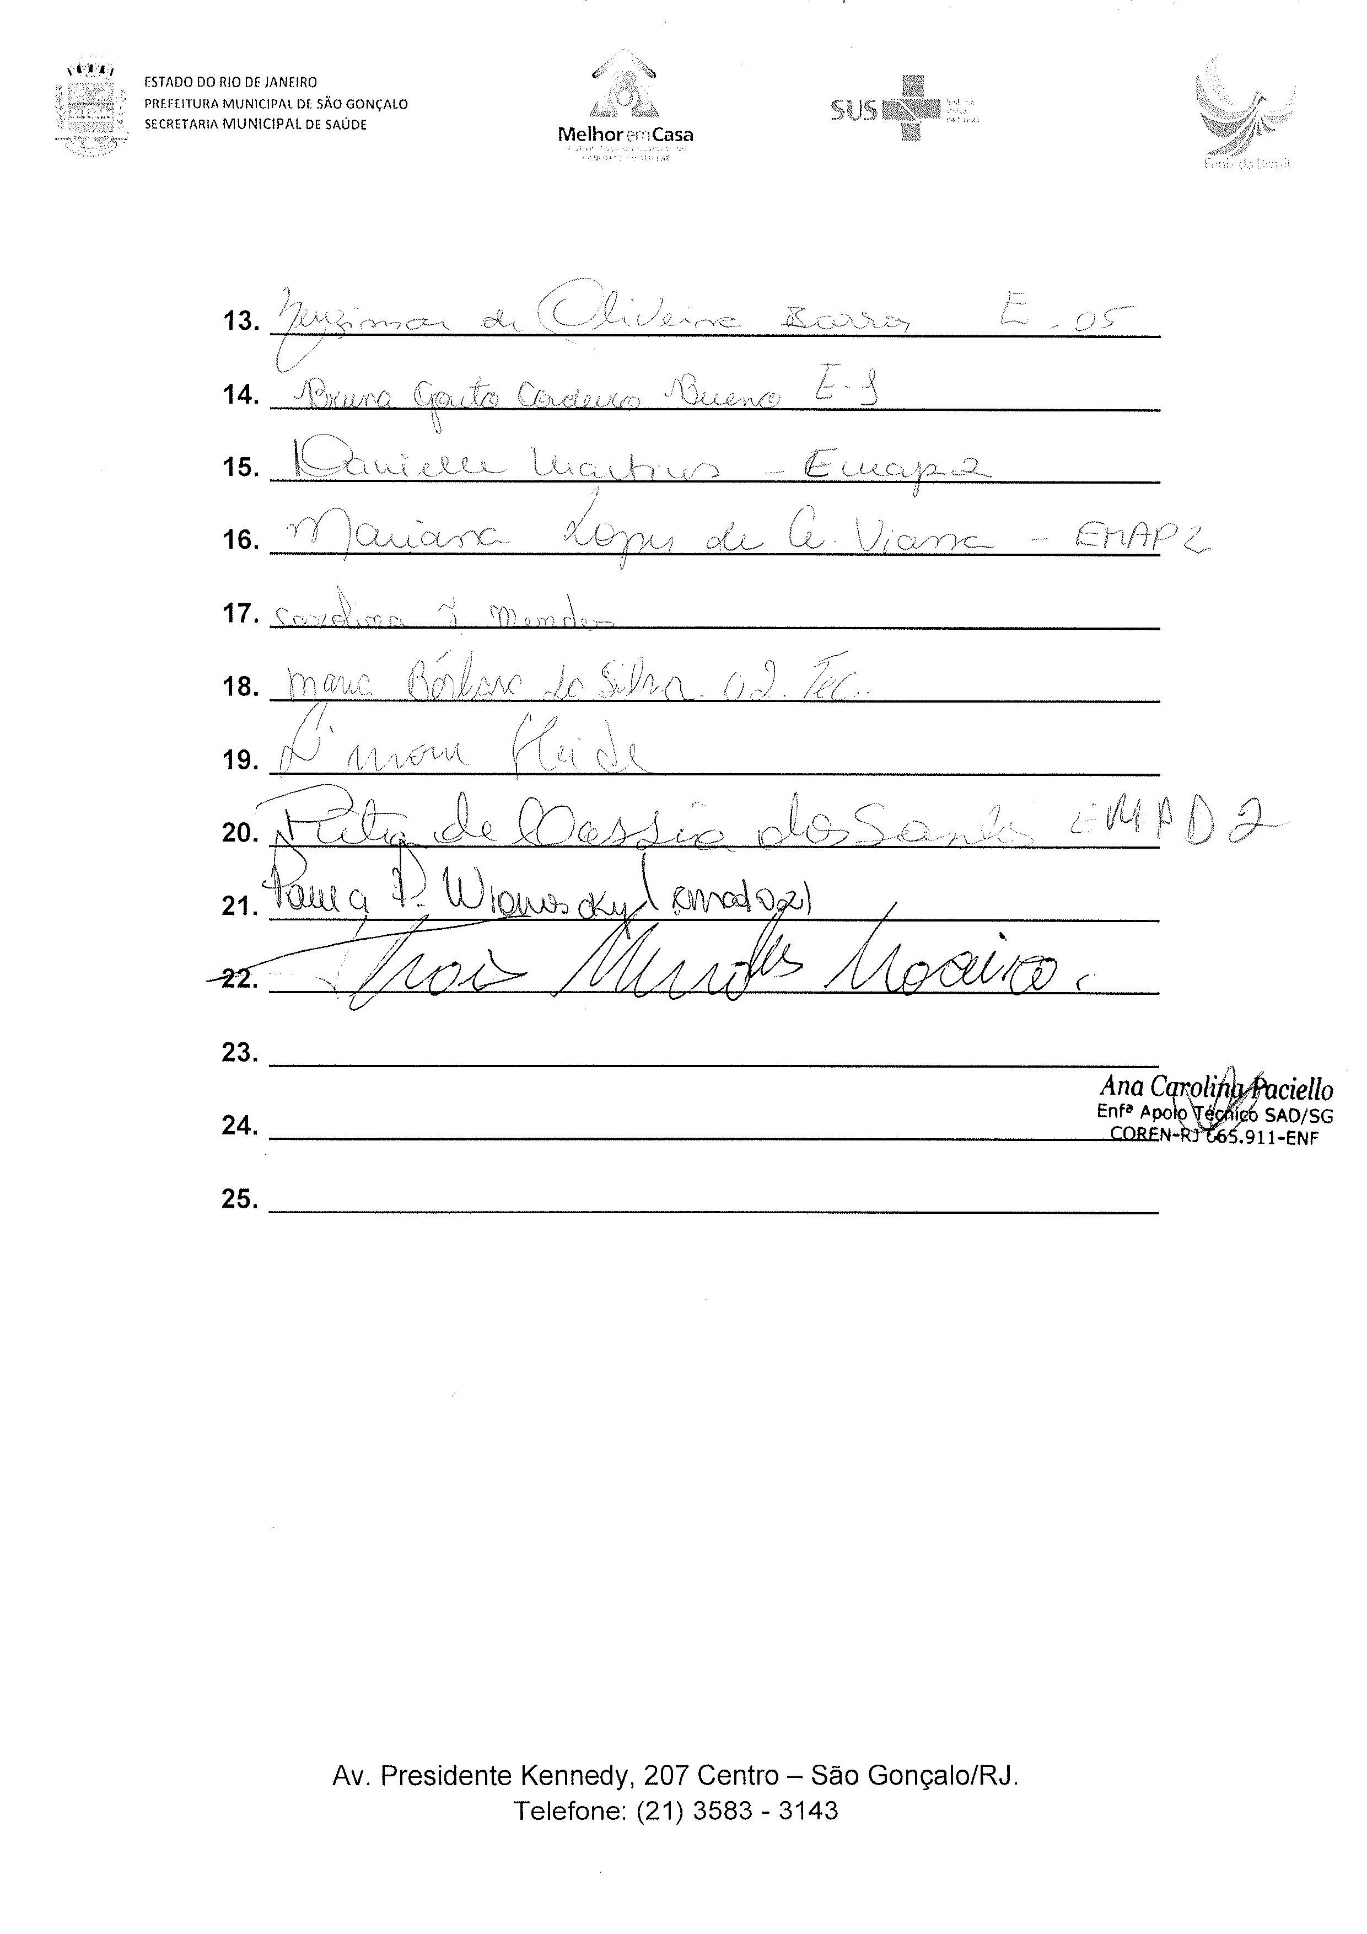 ESTADO DO RIO DE JANEIRO
PREFEITURA MUNICIPAL DE SÃO GONÇALO
SECRETARIA MUNICIPAL DE SAÚDE
Melhor em Casa
SUS
13. de Oliveira Barros E. 05
14. Bruna Cordeiro Bueno
15. Danielle Martins - Emap2
16. Mariana Lopes de A. Viana - EMAP2
17. Carolina Mendes
18. Maria Bárbara da Silva 02. Tec.
19.
20. Rita de Cassia dos Santos EMAD 2
21. Paula P. (emad 02)
22. Mendes Moreira.
23.
24.
25.
Ana Carolina Paciello
Enfª Apoio Técnico SAD/SG
COREN-RJ 665.911-ENF
Av. Presidente Kennedy, 207 Centro – São Gonçalo/RJ.
Telefone: (21) 3583 - 3143